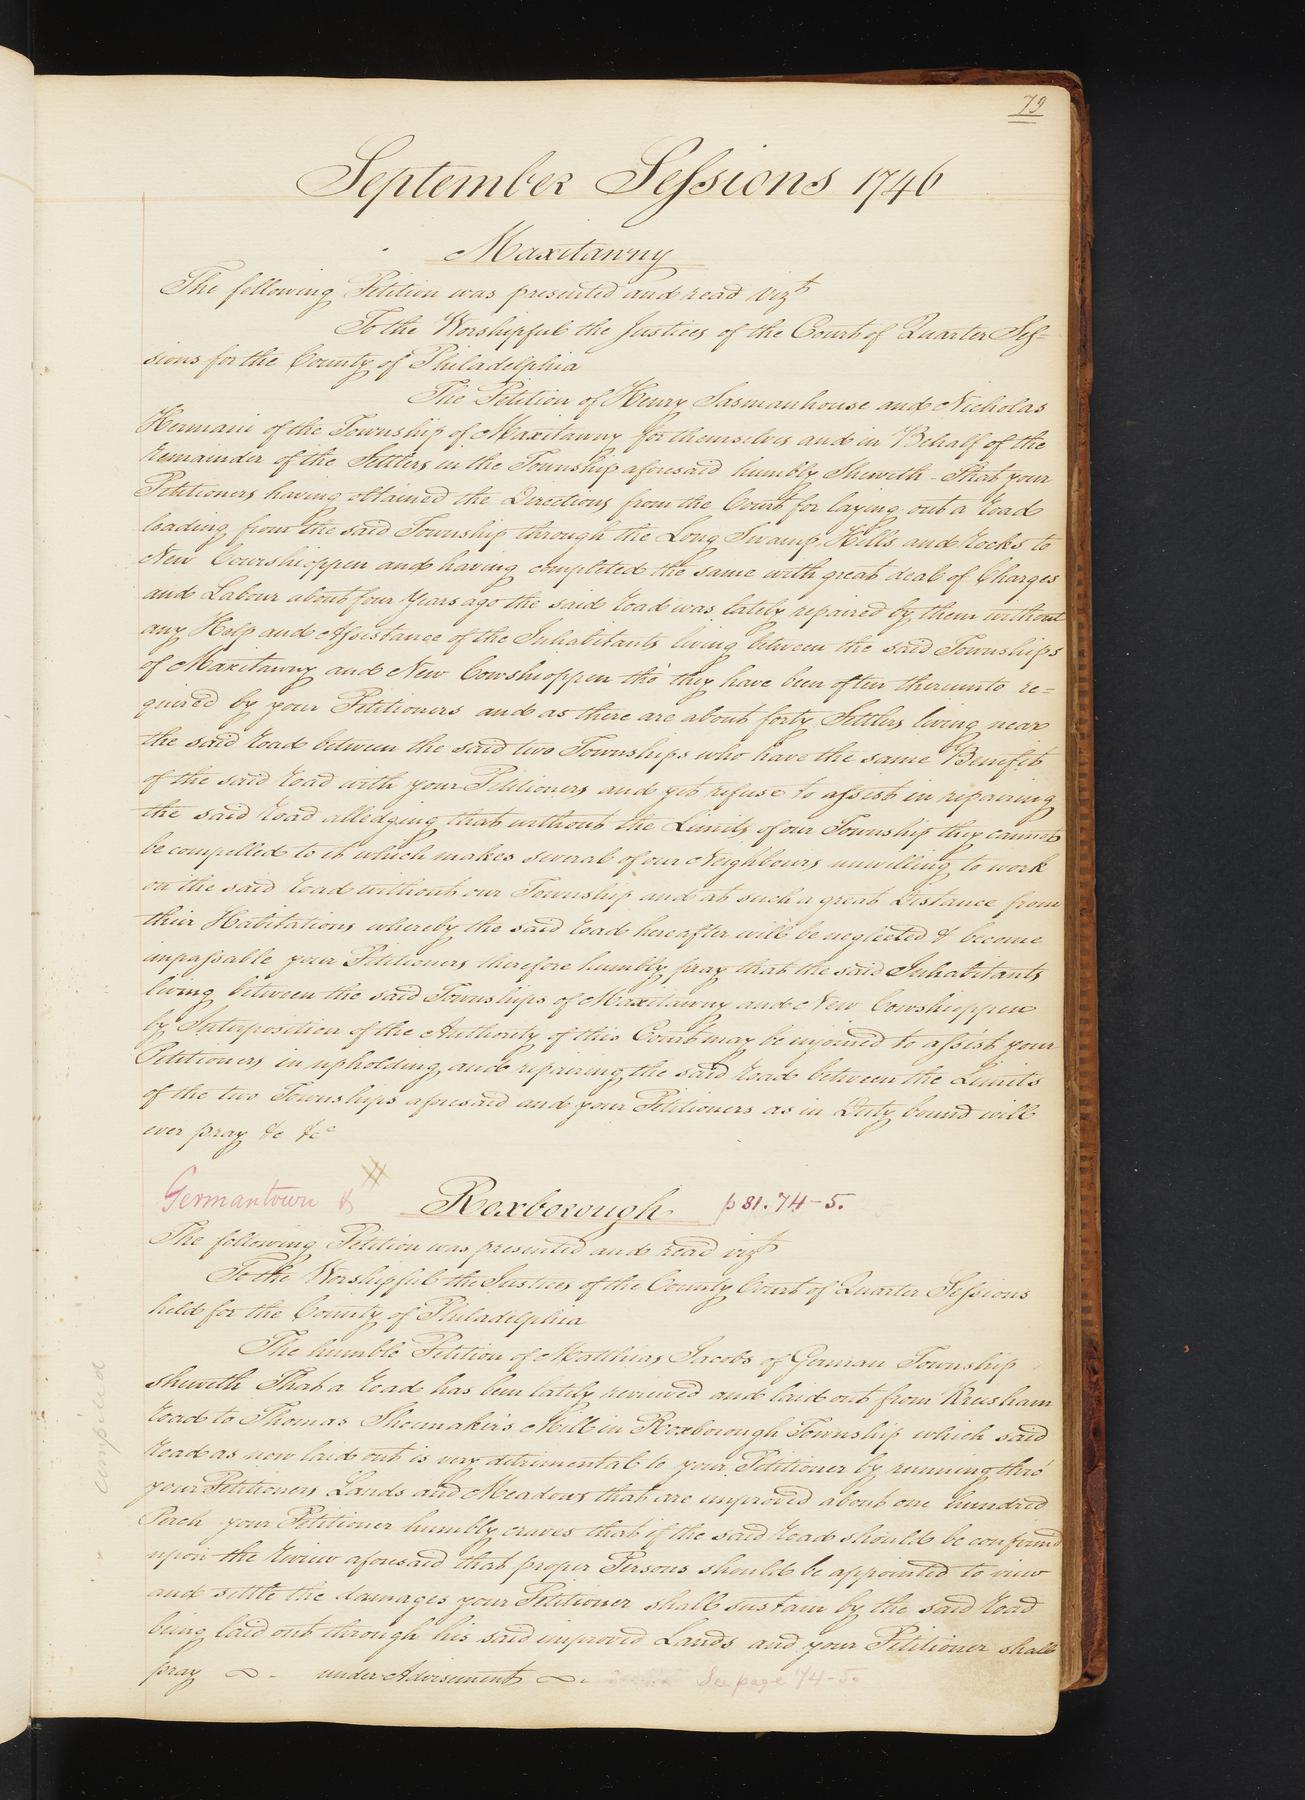 79
September Sessions 1746
Maxitawny
The following Petition was presented and read vizt
To the Worshipful the Justices of the Court of Quarter Ses=
sions for the County of Philadelphia
The Petition of Henry Sasmanhouse and Nicholas
Hermane of the Township of Maxitawny for themselves and in Behalf of the
Remainder of the Settlers in the Township aforesaid humbly Sheweth - That your
Petitioners having obtained the Directions from the Court for laying out a Road
leading from the said Township through the Long Swamp, Hills and Rocks to
New Cowshoppen and having compleated the same with great deal of Charges
and Labour about four Years ago the said Road was lately repaired by them without
any Help and Assistance of the Inhabitants living between the said Townships
of Maxitawny and New Cowshoppen tho' they have been often thereunto re=
quired by your Petitioners and as there are about forty Settlers living near
the said Road between the said two Townships who have the same Benefit
of the said Road with your Petitioners and yet refuse to assist in repairing
the said Road alledging that without the Limits of our Township they cannot
be compelled to it which makes several of our Neighbours unwilling to work
on the said Road without our Township and at such a great Distance from
their Habitations whereby the said Road hereafter will be neglected & become
impassable your Petitioners therefore humbly pray that the said Inhabitants
living between the said Townships of Maxitawny and New Cowshoppen
by Interposition of the Authority of this Court may be injoined to assist your
Petitioners in upholding and repairing the said Road between the Limits
of the two Townships aforesaid and your Petitioners as in Duty bound will
ever pray &c &c
Germantown & Roxborough p 81. 74-5.
The following Petition was presented and read vizt
To the Worshipful the Justices of the County Court of Quarter Sessions
held for the County of Philadelphia
The humble Petition of Matthias Jacobs of German Township
sheweth That a Road has been lately reviewed and laid out from Kresham
Road to Thomas Shoemaker's Mill in Roxborough Township which said
Road as now laid out is very detrimental to your Petitioner by running thro'
your Petitioners Lands and Meadows that are improved about one hundred
Perch your Petitioner humbly craves that if the said Road should be confirmd
upon the Review aforesaid that proper Persons should be appointed to view
and settle the damages your Petitioner shall sustain by the said Road
being laid out through his said improved Lands and your Petitioner shall
pray - under Advisement See page 74-5.
compared